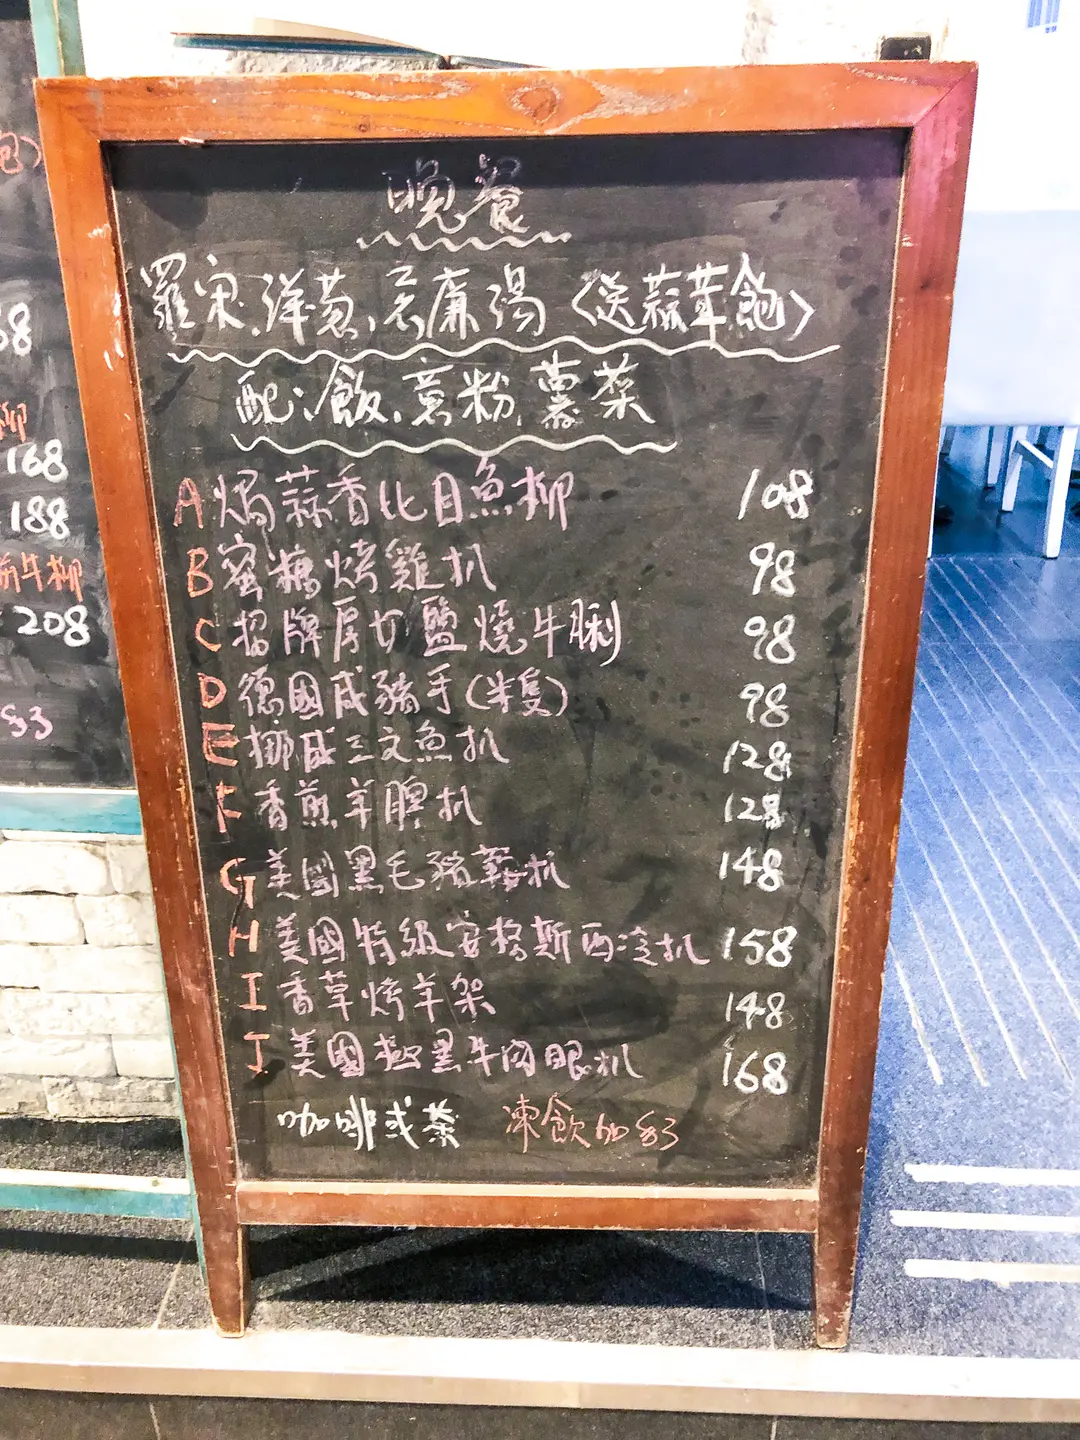 晚餐
羅宋.洋葱.忌廉湯〈送蒜茸飽〉
配:飯.意粉.薯菜
A 焗蒜香比目魚柳 108
B 蜜糖烤雞扒 98
C 招牌厚切鹽燒牛脷 98
D 德國咸豬手(半隻) 98
E 挪威三文魚扒 128
F 香煎羊脾扒 128
G 美國黑毛豬鞍扒 148
H 美國特級安格斯西冷扒 158
I 香草烤羊架 148
J 美國極黑牛肉眼扒 168
咖啡或茶 凍飲加$3
飽)
68
柳
168
188
牛柳
208
$3